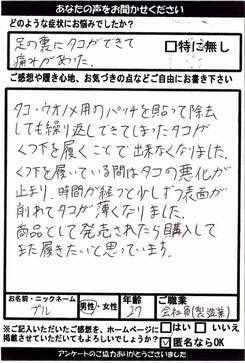 あなたの声をお聞かせください
どのような症状にお悩みでしたか?
足の裏にタコができて
痛みがあった。
□特に無し
ご感想や履き心地、お気づきの点などご自由にお書き下さい
タコ・ウオノメ用のパッチを貼って除去
しても繰り返しできてしまったタコが
くつ下を履くことで出来なくなりました。
くつ下を履いている間はタコの悪化が
止まり、時間が経つと少しずつ表面が
削れてタコが薄くなりました。
商品として発売されたら購入して
また履きたいと思っています。
お名前・ニックネーム
プル
男性・女性
年齢
27
ご職業
会社員(製造業)
※ご記入いただいたご感想を、ホームページに
掲載させていただいてもよろしいでしょうか?
□はい □いいえ
☑匿名ならOK
アンケートのご協力ありがとうございました